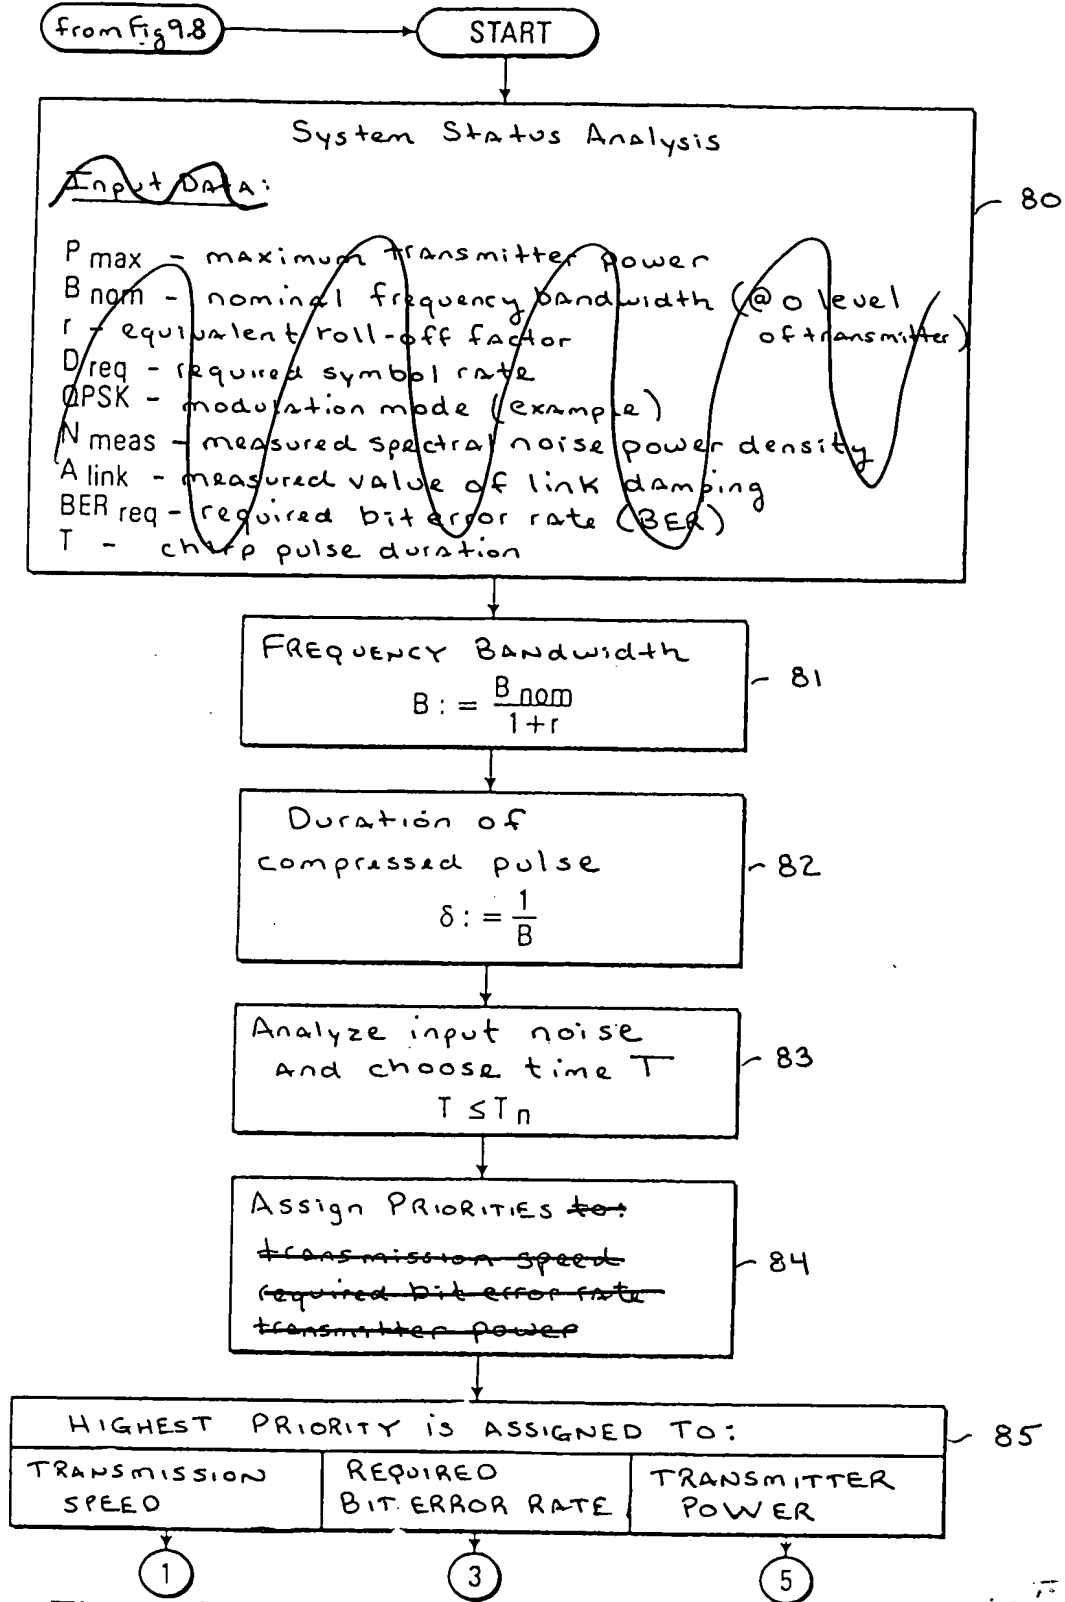 from Fig 9.8
START
System Status Analysis
Input Data:
80
P max - maximum transmitter power
B nom - nominal frequency bandwidth (@ 0 level
of transmitter)
r - equivalent roll-off factor
D req - required symbol rate
QPSK - modulation mode (example)
N meas - measured spectral noise power density
A link - measured value of link damping
BER req - required bit error rate (BER)
T - chirp pulse duration
FREQUENCY BANDwidth
B := B nom / 1 + r
81
Duration of
compressed pulse
δ := 1 / B
82
Analyze input noise
and choose time T
T ≤ T n
83
Assign PRIORITIES to:
transmission speed
required bit error rate
transmitter power
84
HIGHEST PRIORITY is ASSIGNED TO:
85
TRANSMISSION
SPEED
REQUIRED
BIT ERROR RATE
TRANSMITTER
POWER
1
3
5